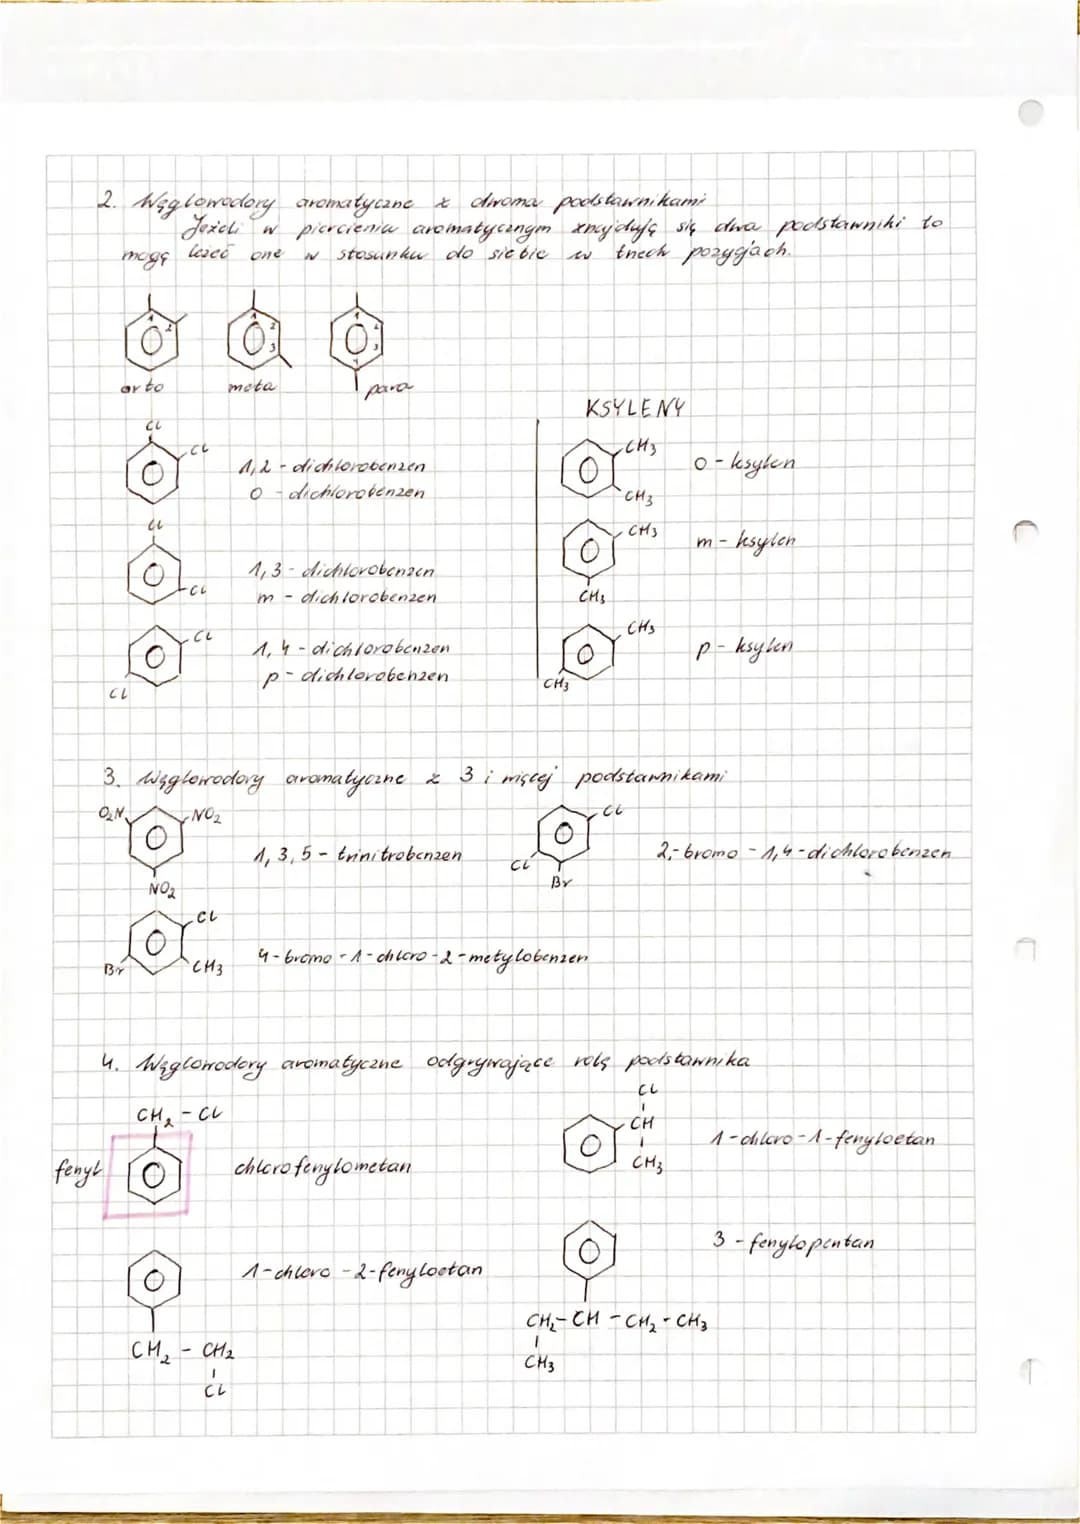 2. Węglowodory aromatyczne z dwoma podstawnikami
Jeżeli w pierścieniu aromatycznym znajdują się dwa podstawniki to
mogą leżeć one w stosunku do siebie w trzech pozycjach.
1 2
1 2 3
1 2 3 4
orto meta para
KSYLENY
Cl
Cl
1,2 - dichlorobenzen
o - dichlorobenzen
CH3
CH3
o - ksylen
Cl
Cl
1,3 - dichlorobenzen
m - dichlorobenzen
CH3
CH3
m - ksylen
Cl
Cl
1,4 - dichlorobenzen
p - dichlorobenzen
CH3
CH3
p - ksylen
3. Węglowodory aromatyczne z 3 i więcej podstawnikami
O2N NO2
NO2
1,3,5 - trinitrobenzen
Cl
Cl
Br
2,-bromo - 1,4-dichlorobenzen
Cl
Br CH3
4-bromo-1-chloro-2-metylobenzen
4. Węglowodory aromatyczne odgrywające rolę podstawnika
CH2 - Cl
fenyl
chlorofenylometan
Cl
CH
CH3
1-chloro-1-fenyloetan
1-chloro-2-fenyloetan
CH2 - CH2
Cl
3-fenylopentan
CH2-CH-CH2-CH3
CH3